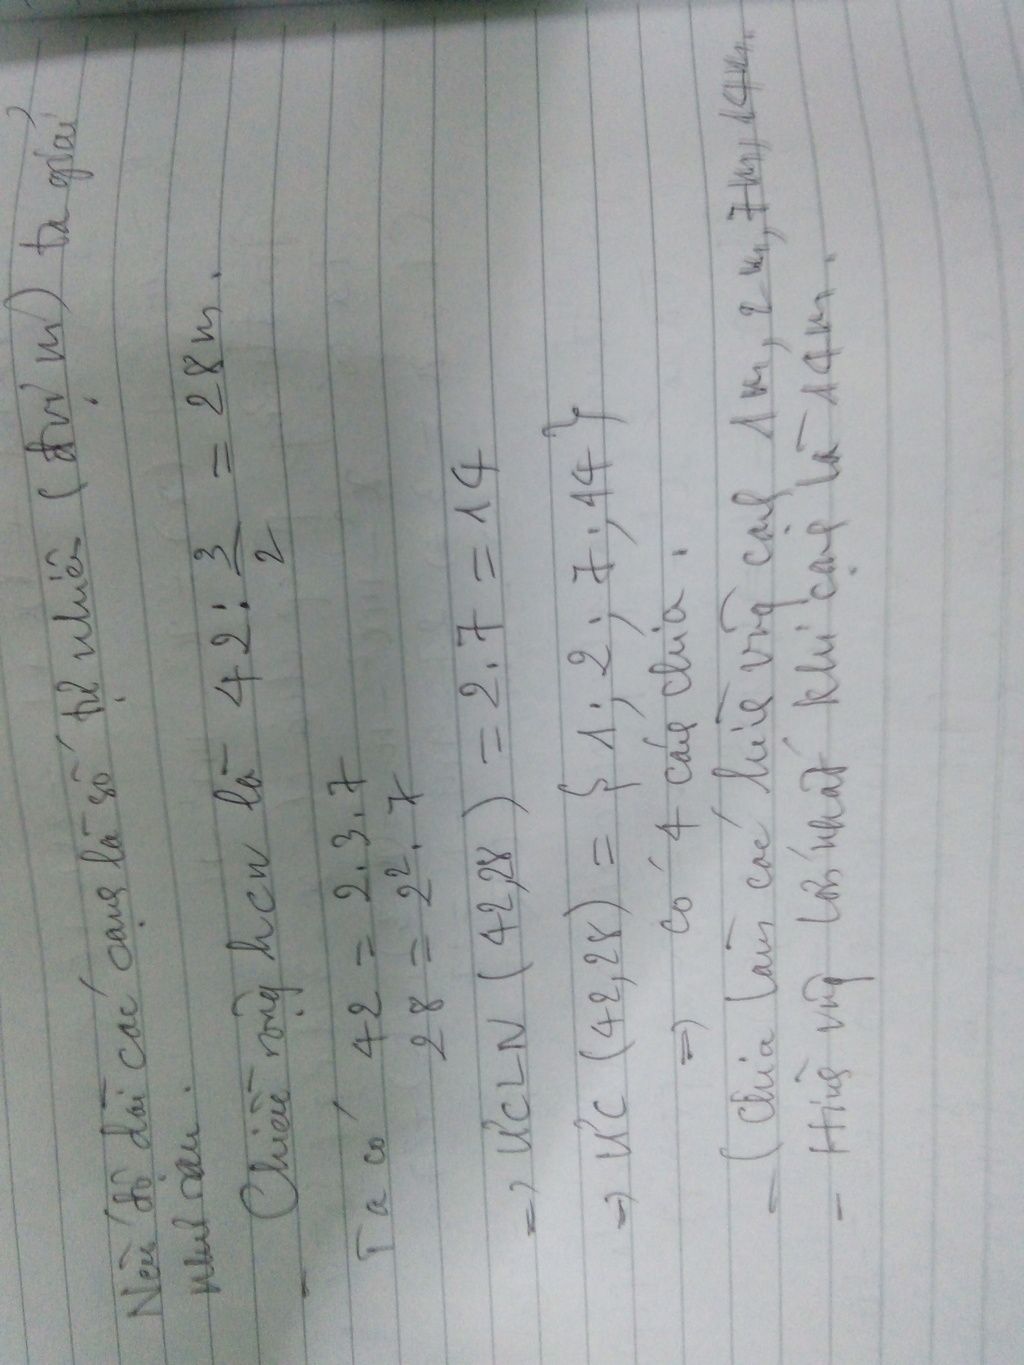 Nếu độ dài các cạnh là số tự nhiên (đơn vị m) ta giải
như sau.
- Chiều rộng hcn là 42 : 3/2 = 28m.
Ta có 42 = 2.3.7
28 = 2². 7
=> ƯCLN (42,28) = 2.7 = 14
=> ƯC (42,28) = { 1 ; 2 ; 7 ; 14 }
=> có 4 cách chia.
- (Chia làm các hình vuông cạnh 1m, 2m, 7m, 14m.
- Hình vuông lớn nhất khi cạnh là 14m.